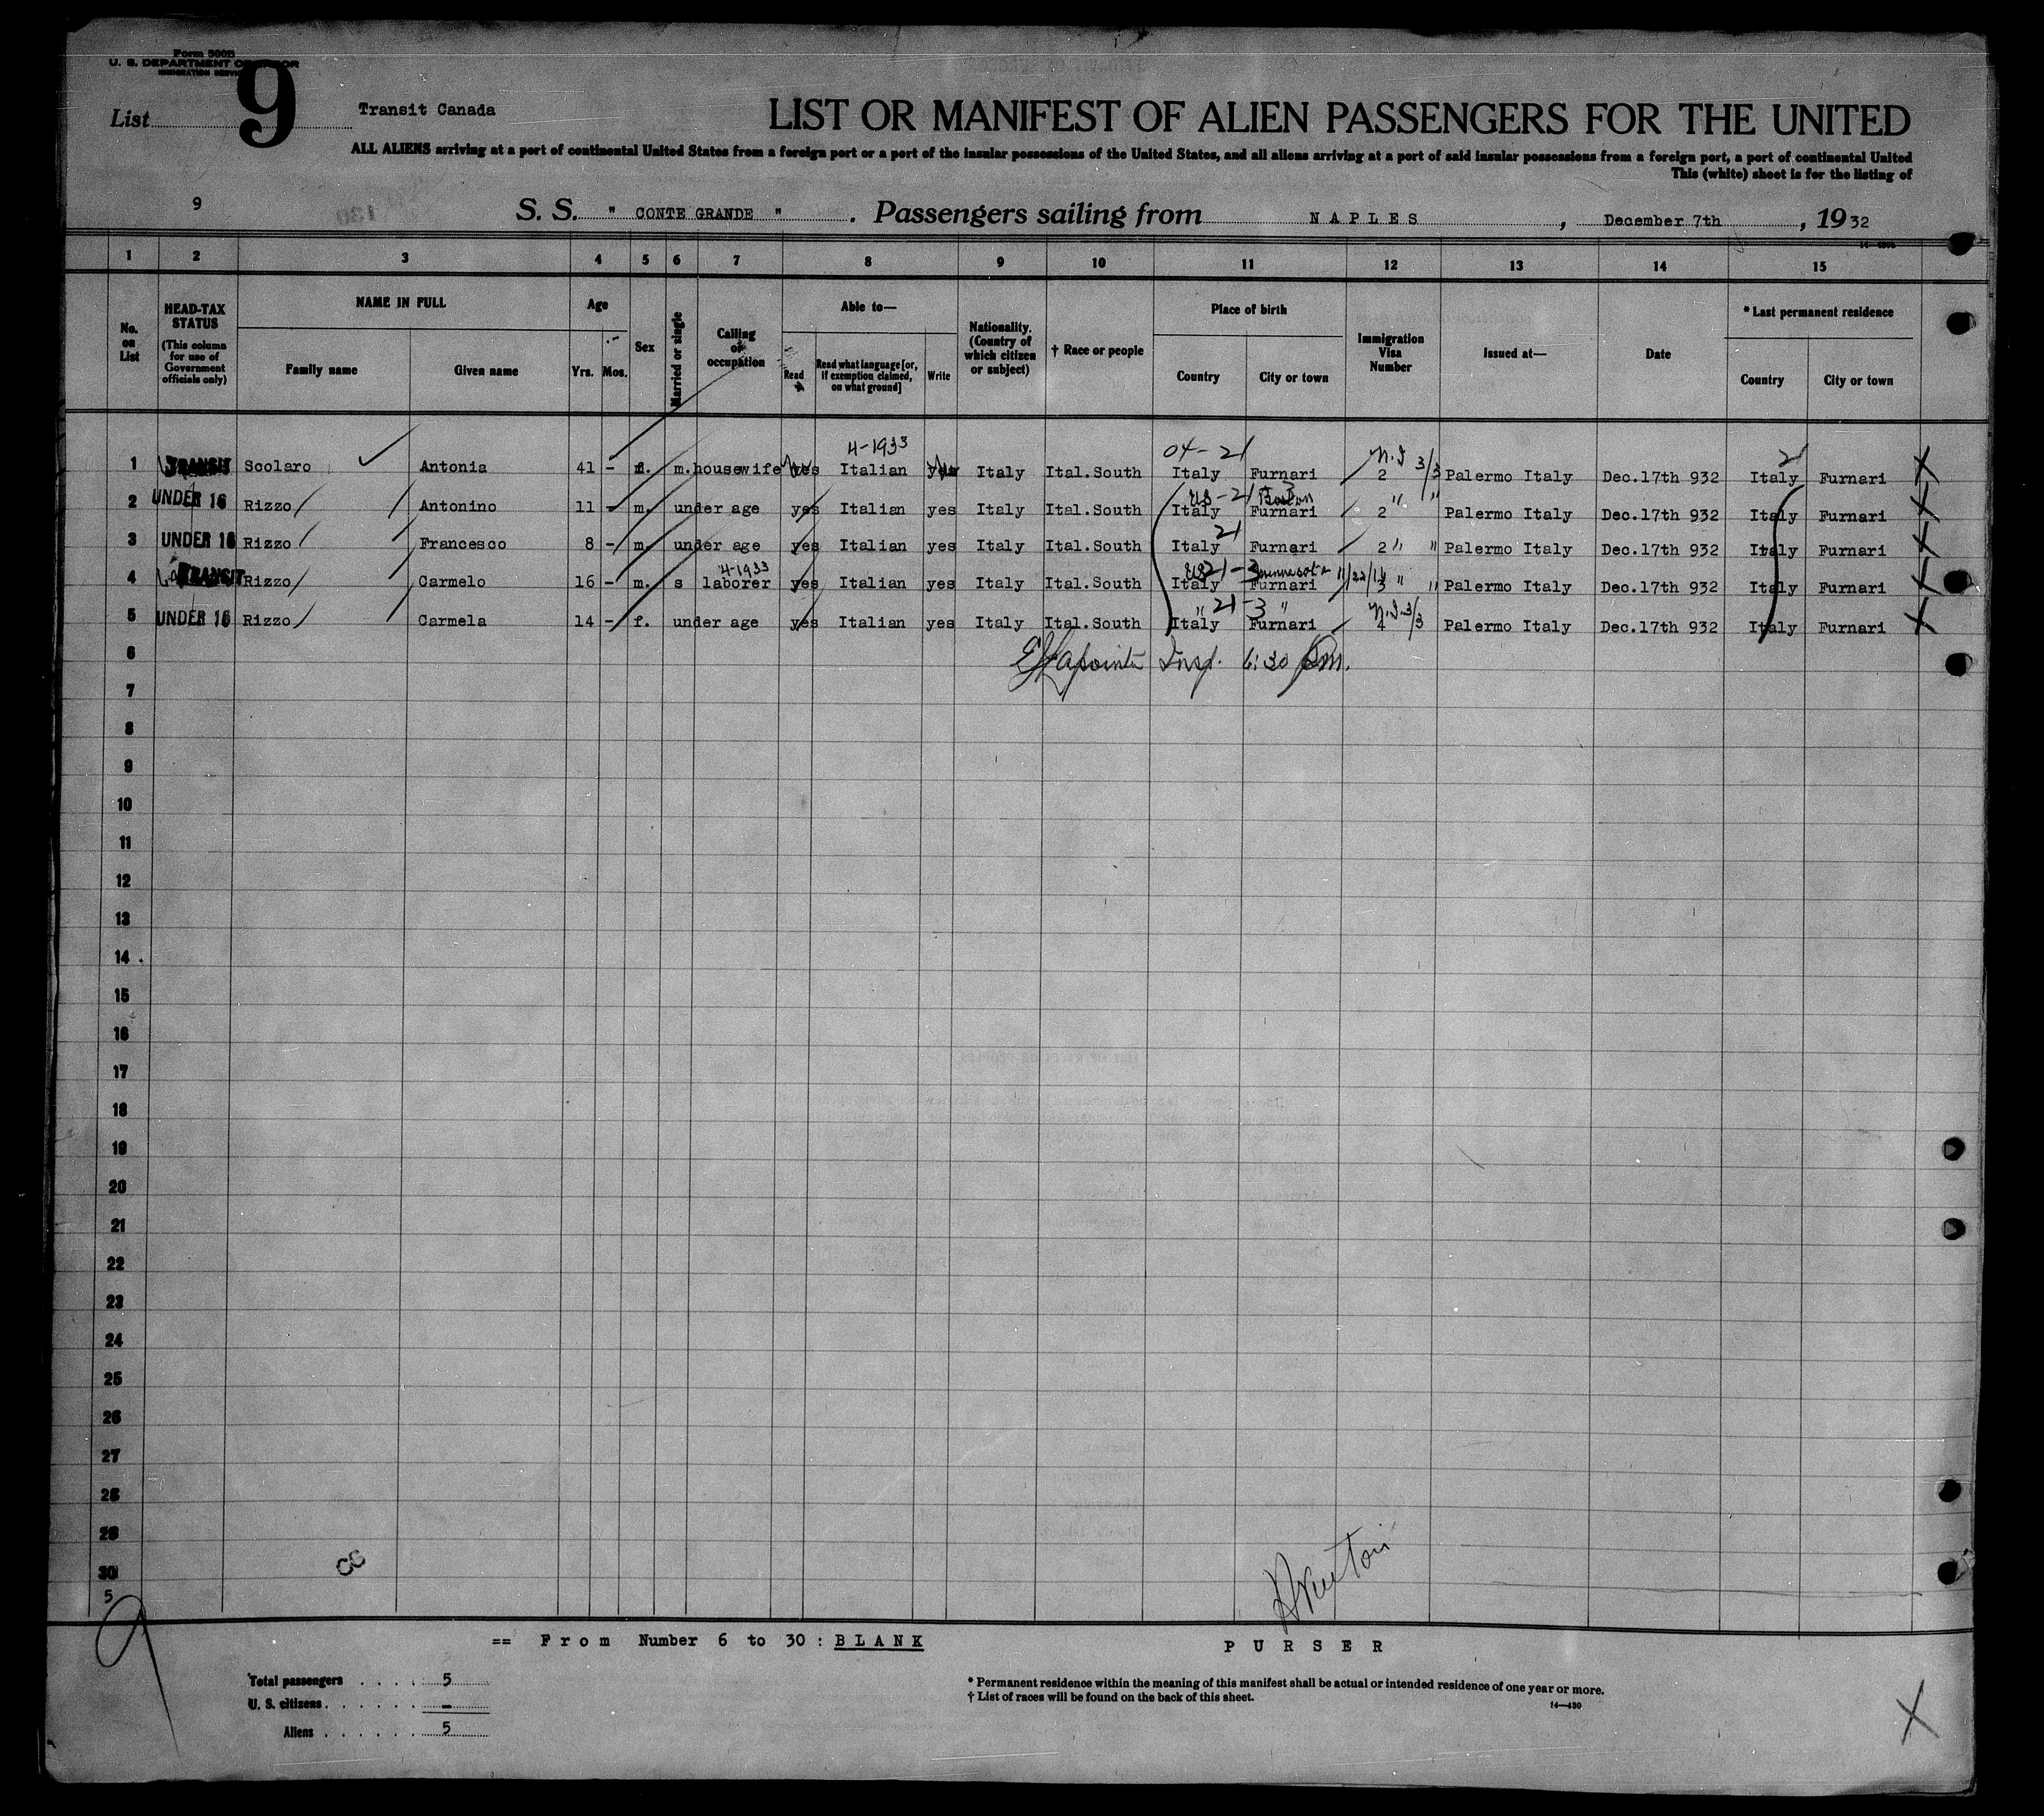 Form 500B
U. S. DEPARTMENT OF LABOR
IMMIGRATION SERVICE
List 9 Transit Canada
LIST OR MANIFEST OF ALIEN PASSENGERS FOR THE UNITED
ALL ALIENS arriving at a port of continental United States from a foreign port or a port of the insular possessions of the United States, and all aliens arriving at a port of said insular possessions from a foreign port, a port of continental United
This (white) sheet is for the listing of
9
S. S. " CONTE GRANDE " . Passengers sailing from NAPLES , December 7th , 1932
1 2 3 4 5 6 7 8 9 10 11 12 13 14 15
No. on List
HEAD-TAX STATUS
(This column for use of Government officials only)
NAME IN FULL
Family name
Given name
Age
Yrs. Mos.
Sex
Married or single
Calling or occupation
Able to—
Read
Read what language [or, if exemption claimed, on what ground]
Write
Nationality. (Country of which citizen or subject)
† Race or people
Place of birth
Country
City or town
Immigration Visa Number
Issued at—
Date
* Last permanent residence
Country
City or town
4-1933 04-21 N.I 3/3 21
1 TRANSIT Scolaro Antonia 41 - f. m. housewife yes Italian yes Italy Ital.South Italy Furnari 2 Palermo Italy Dec.17th 932 Italy Furnari X
US-21 Boston " "
2 UNDER 16 Rizzo Antonino 11 - m. under age yes Italian yes Italy Ital.South Italy Furnari 2 Palermo Italy Dec.17th 932 Italy Furnari X
21
3 UNDER 16 Rizzo Francesco 8 - m. under age yes Italian yes Italy Ital.South Italy Furnari 2 " " Palermo Italy Dec.17th 932 Italy Furnari X
4-1933 US21-3 Minnesota
4 TRANSIT Rizzo Carmelo 16 - m. s laborer yes Italian yes Italy Ital.South Italy Furnari 3 " " Palermo Italy Dec.17th 932 Italy Furnari X
" 21-3 " N.I. 3/3
5 UNDER 16 Rizzo Carmela 14 - f. under age yes Italian yes Italy Ital.South Italy Furnari 4 Palermo Italy Dec.17th 932 Italy Furnari X
6 Lapointe Insp. 6:30 Pm.
7
8
9
10
11
12
13
14
15
16
17
18
19
20
21
22
23
24
25
26
27
28
29
30
5
9
== From Number 6 to 30 : BLANK
PURSER
Total passengers . . . . 5
U. S. citizens . . . . . . -
Aliens . . . . . . 5
* Permanent residence within the meaning of this manifest shall be actual or intended residence of one year or more.
† List of races will be found on the back of this sheet.
14—430
X